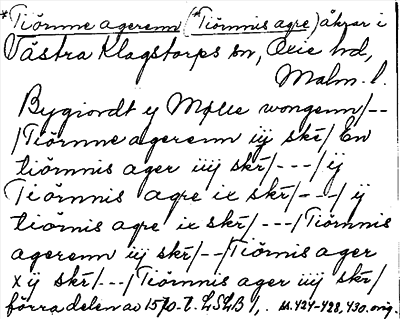 *Tiörnne agerenn (*Tiörnis agre) åkrar i
Västra Klagstorps sn, Oxie hd,
Malm. l.
Bygiordt ij Mølle wongenn/--
/Tiörnne agerenn iij skr̄/ En
tiörnnis ager iiij skr̄/---/ij
Tiörnnis agre ix skr̄/---/ij
tiörnis agre ix skr̄/---/Tiörnnis
agerenn iij skr̄/--/Tiörnis ager
xij skr̄/---/Tiörnnis ager iiij skr̄/
förra delen av 1570-t. LSLB 1, s. 424-428, 430. orig.